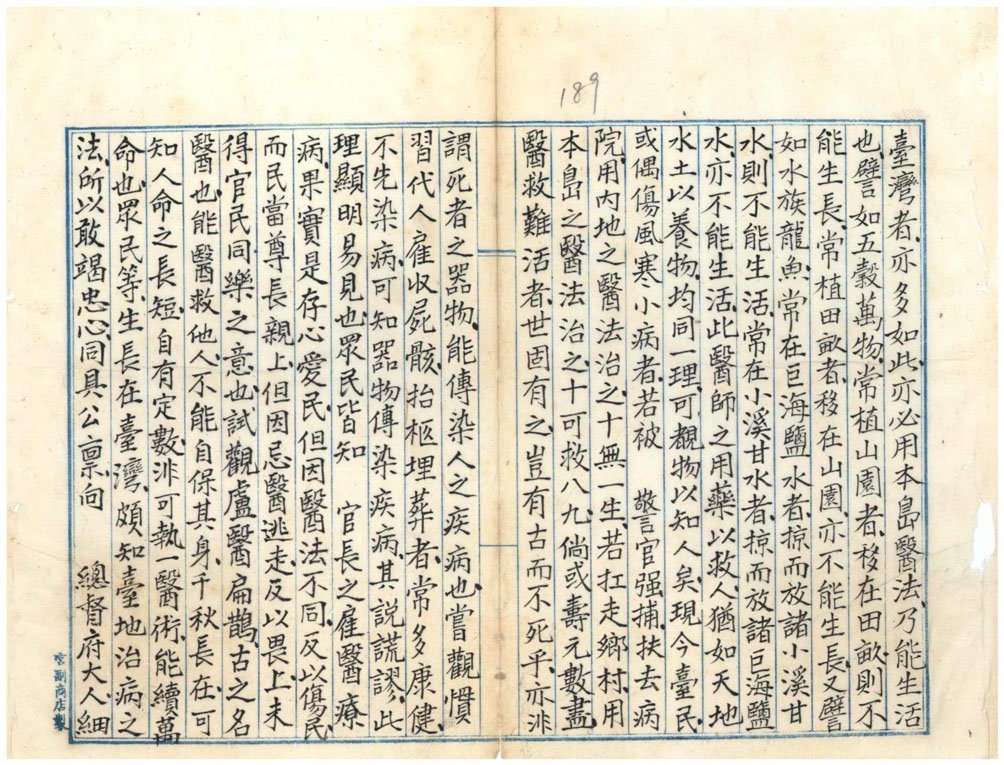 189
臺灣者、亦多如此、亦必用本島醫法、乃能生活
也、譬如五穀萬物、常植山園者、移在田畝、則不
能生長、常植田畝者、移在山園、亦不能生長、又譬
如水族龍魚、常在巨海鹽水者、掠而放諸小溪甘
水、則不能生活、常在小溪甘水者、掠而放諸巨海鹽
水、亦不能生活、此醫師之用藥以救人、猶如天地
水土以養物、均同一理、可觀物以知人矣、現今臺民
或偶傷風寒小病者、若被 警官强捕、扶去病
院、用內地之醫法治之、十無一生、若扛走鄉村、用
本島之醫法治之、十可救八九、倘或壽元數盡、
醫救難活者、世固有之、豈有古而不死乎、亦非
謂死者之器物、能傳染人之疾病也、嘗觀慣
習代人雇收屍骸、抬柩埋葬者、常多康健、
不先染病、可知器物傳染疾病、其說謊謬、此
理顯明易見也、眾民皆知 官長之雇醫療
病、果實是存心愛民、但因醫法不同、反以傷民、
而民當尊長親上、但因忌醫逃走、反以畏上、未
得官民同樂之意也、試觀盧醫扁鵲、古之名
醫也、能醫救他人、不能自保其身、千秋長在、可
知人命之長短、自有定數、非可執一醫術、能續萬
命也、眾民等、生長在臺灣、頗知臺地治病之
法、所以敢竭忠心、同具公禀、向 總督府大人、細
宮副商店製